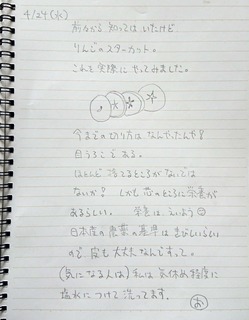 4/24(水)
前々から知ってはいたけど
りんごのスターカット。
これを実際にやってみました。
今までの切り方はなんやったんや?
目うろこである。
ほとんど捨てるところがないでは
ないか? しかも芯のところに栄養が
あるらしい。 栄養は、えいよう
日本産の農薬の基準はきびしいらしい
ので皮も大丈夫なんですって。
(気になる人は)私は気休め程度に
塩水につけて洗ってます。
お